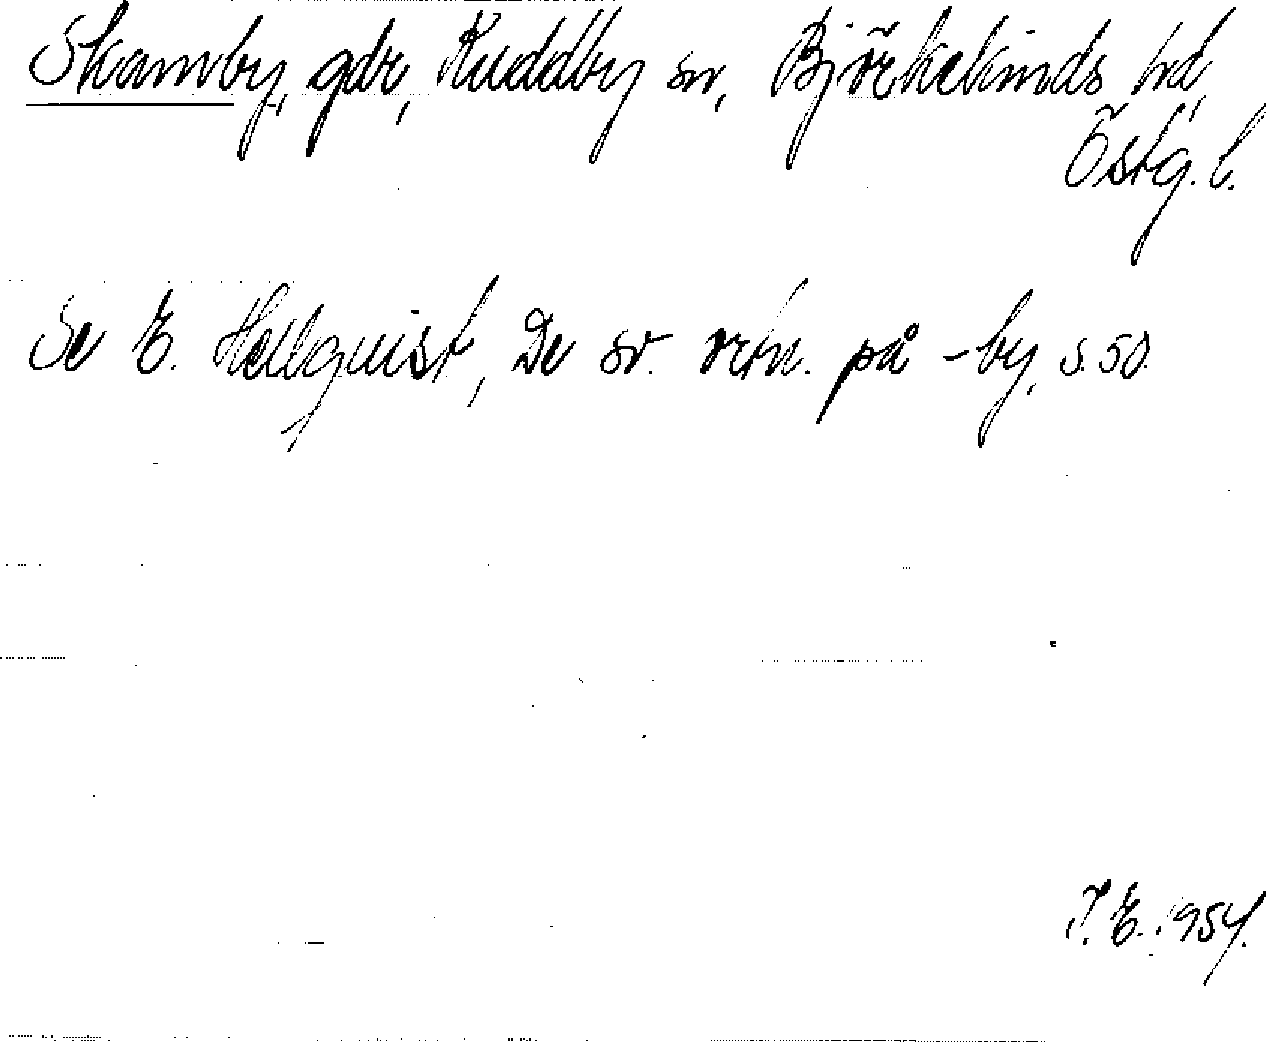 Skamby, gdr, Kuddby sn, Björkekinds hd,
Östg. l.
Se E. Hellquist, De sv. ortn. på -by, s. 50.
T. E. 1954.